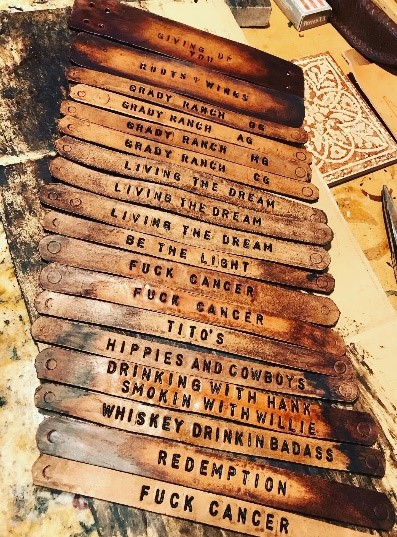 GIVING UP
YOU
ROOTS & WINGS
GRADY RANCH GG
GRADY RANCH AG
GRADY RANCH MG
GRADY RANCH CG
LIVING THE DREAM
LIVING THE DREAM
LIVING THE DREAM
BE THE LIGHT
FUCK CANCER
FUCK CANCER
TITO'S
HIPPIES AND COWBOYS
DRINKING WITH HANK
SMOKIN WITH WILLIE
WHISKEY DRINKIN BADASS
REDEMPTION
FUCK CANCER